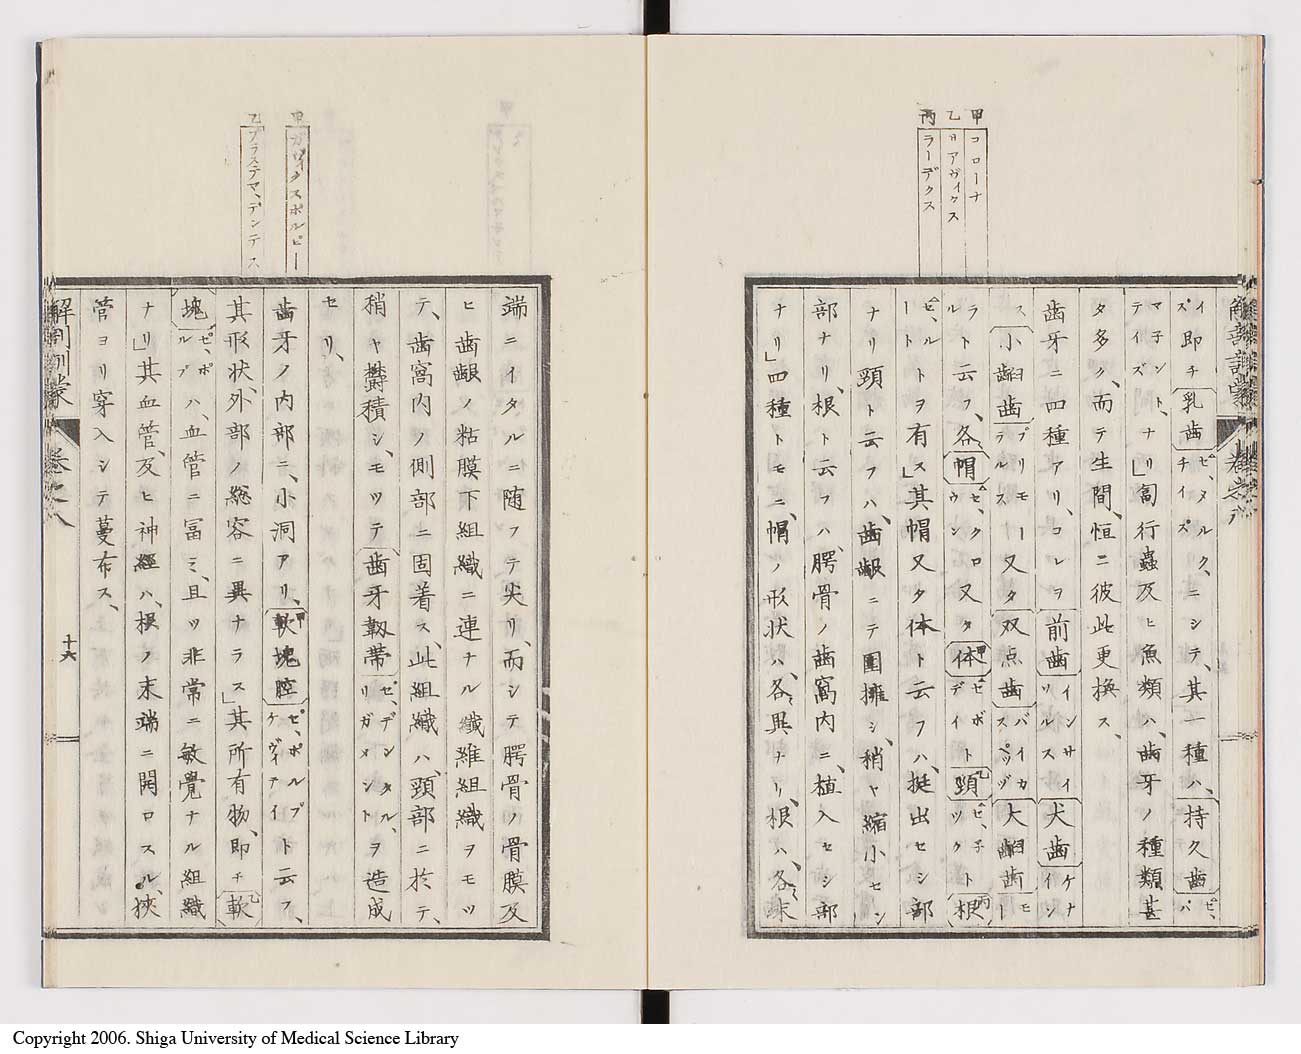 甲 コローナ
乙 ヨアヴィクス
丙 ラーデクス
イズ 即チ 乳歯 ゼ、メルク、チイズ ニシテ、其一種ハ、持久歯 ゼ、パ
マ子ント、テイズ ナリ」匐行蟲及ヒ魚類ハ、歯牙ノ種類甚
タ多ク、而テ生間、恒ニ彼此更換ス、
歯牙ニ四種アリ、コレヲ 前歯 インサイソルス 犬歯 ケナイン
ス、小齒歯 プリモーラルス 又タ 双点歯 バイカスペッヅ 大齒歯 モー
ラルト云フ、各、帽 ゼ、クロウン 又タ 体 ゼ、ボデイ ト 頸 ゼ、子ック ト 根
ゼ、ルート トヲ有ス」其帽又タ体ト云フハ、挺出セシ部
ナリ頸ト云フハ、歯齦ニテ圍擁シ、稍ヤ縮小セシ
部ナリ、根ト云フハ、腭骨ノ歯窩内ニ、植入セシ部
ナリ」四種トモニ、帽ノ形状ハ、各、異ナリ、根ハ、各、末
解剖訓蒙 巻之八
甲 ガヴィタスポルピー
乙 プラステマ、デンテス
端ニイタルニ随フテ尖リ、而シテ腭骨ノ骨膜及
ヒ歯齦ノ粘膜下組織ニ連ナル纖維組織ヲモツ
テ、歯窩内ノ側部ニ固着ス、此組織ハ、頸部ニ於テ、
稍ヤ欝積シ、モツテ 歯牙靱帯 ゼ、デンタル、リガメント ヲ造成
セリ、
歯牙ノ内部ニ、小洞アリ、軟塊腔 ゼ、ポルプ、ケヴィテイ ト云フ、
其形状、外部ノ総容ニ異ナラス」其所有物、即チ 軟
塊 ゼ、ポルプ ハ、血管ニ冨ミ、且ツ非常ニ敏覺ナル組織
ナリ」其血管、及ヒ神經ハ、根ノ末端ニ開口スル、狹
管ヨリ穿入シテ蔓布ス、
解剖訓蒙 巻之八 十六
Copyright 2006. Shiga University of Medical Science Library